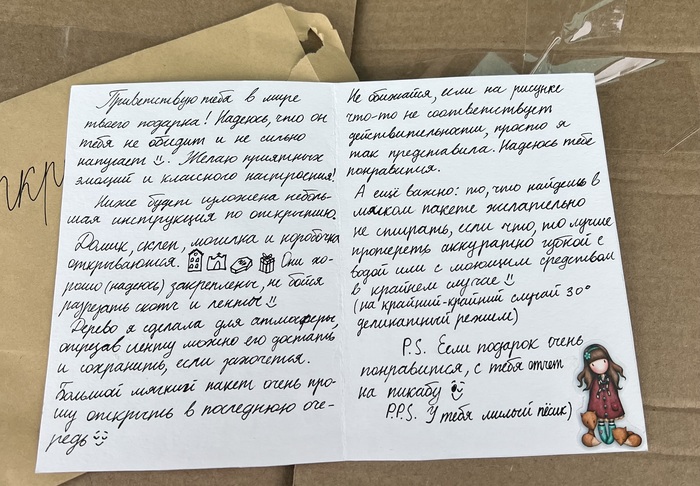 Приветствую тебя в мире
твоего подарка! Надеюсь, что он
тебя не обидит и не сильно
напугает. Желаю приятных
эмоций и классного настроения!
Ниже будет изложена неболь-
шая инструкция по открытию.
Домик, склеп, могилка и коробочка
открываются. Они хо-
рошо (надеюсь) закреплены, не бойся
разрезать скотч и ленты
Дерево я сделала для атмосферы,
отрезав ленту можно его достать
и сохранить, если захочется.
Большой мягкий пакет очень про-
шу открыть в последнюю оче-
редь
Не обижайся, если на рисунке
что-то не соответствует
действительности, просто я
так представила. Надеюсь тебе
понравится.
А ещё важно: то, что найдешь в
мягком пакете желательно
не стирать, если что, то лучше
протереть аккуратно губкой с
водой или с моющим средством
в крайнем случае
(на крайний-крайний случай 30°
деликатный режим)
P.S. Если подарок очень
понравится, с тебя отчет
на пикабу
P.P.S. У тебя милый пёсик)